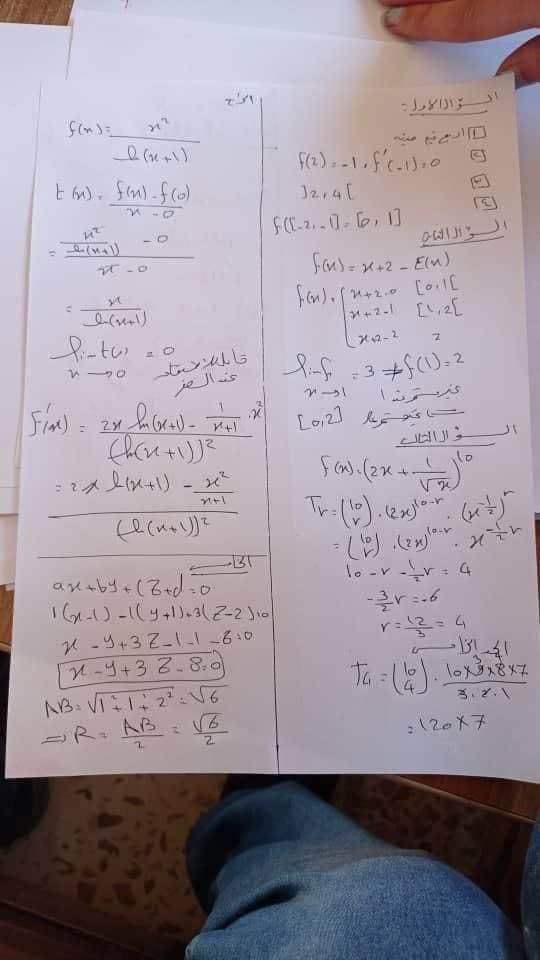 السؤال الاول:
1
f(2) = -1 , f'(-1) = 0
2
]2, 4[
3
f([-2, -1] = [0, 1]
4
السؤال الثاني
f(x) = x + 2 - E(x)
f(x) = { x+2-0 [0, 1[
x+2-1 [1, 2[
x+2-2 2
lim f = 3 ≠ f(1) = 2
x → 1
[0, 2]
السؤال الثالث
f(x) = (2x + 1/√x)^10
Tr = (10 r) . (2x)^10-r . (x^-1/2)^r
= (10 r) . (2x)^10-r . x^-1/2 r
10 - r - 1/2 r = 4
-3/2 r = -6
r = 12/3 = 4
T4 = (10 4) . 10 x 9 x 8 x 7 / 3 . 2 . 1
= 120 x 7
f(x) = x² / ln(x+1)
t(x) = f(x) - f(0) / x - 0
= x² / ln(x+1) - 0 / x - 0
= x / ln(x+1)
lim t(x) = 0 قابل للاشتقاق
x → 0 عند الصفر
f'(x) = 2x ln(x+1) - 1/x+1 . x² / (ln(x+1))²
= 2x ln(x+1) - x²/x+1 / (ln(x+1))²
ax + by + cz + d = 0
1(x-1) - 1(y+1) + 3(z-2) = 0
x - y + 3z - 1 - 1 - 6 = 0
x - y + 3z - 8 = 0
AB = √1² + 1² + 2² = √6
⇒ R = AB/2 = √6/2